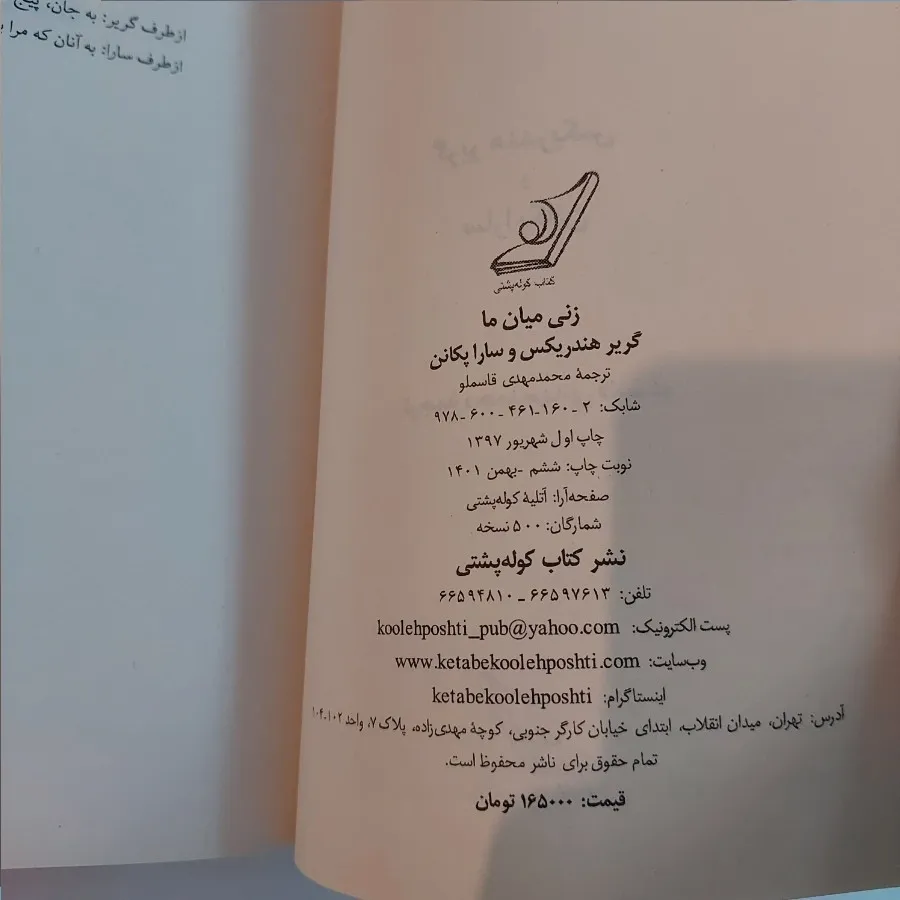 ازطرف گریر: به جان، پیج
ازطرف سارا: به آنان که مرا
کتاب کوله‌پشتی
زنی میان ما
گریر هندریکس و سارا پکانن
ترجمهٔ محمدمهدی قاسملو
شابک: ۲ - ۱۶۰ -۴۶۱ - ۶۰۰ -۹۷۸
چاپ اول شهریور ۱۳۹۷
نوبت چاپ: ششم -بهمن ۱۴۰۱
صفحه‌آرا: آتلیهٔ کوله‌پشتی
شمارگان: ۵۰۰ نسخه
نشر کتاب کوله‌پشتی
تلفن: ۶۶۵۹۷۶۱۳ ـ ۶۶۵۹۴۸۱۰
پست الکترونیک: koolehposhti_pub@yahoo.com
وب‌سایت: www.ketabekoolehposhti.com
اینستاگرام: ketabekoolehposhti
آدرس: تهران، میدان انقلاب، ابتدای خیابان کارگر جنوبی، کوچهٔ مهدی‌زاده، پلاک ۷، واحد ۱۰۲-۱۰۴
تمام حقوق برای ناشر محفوظ است.
قیمت: ۱۶۵۰۰۰ تومان